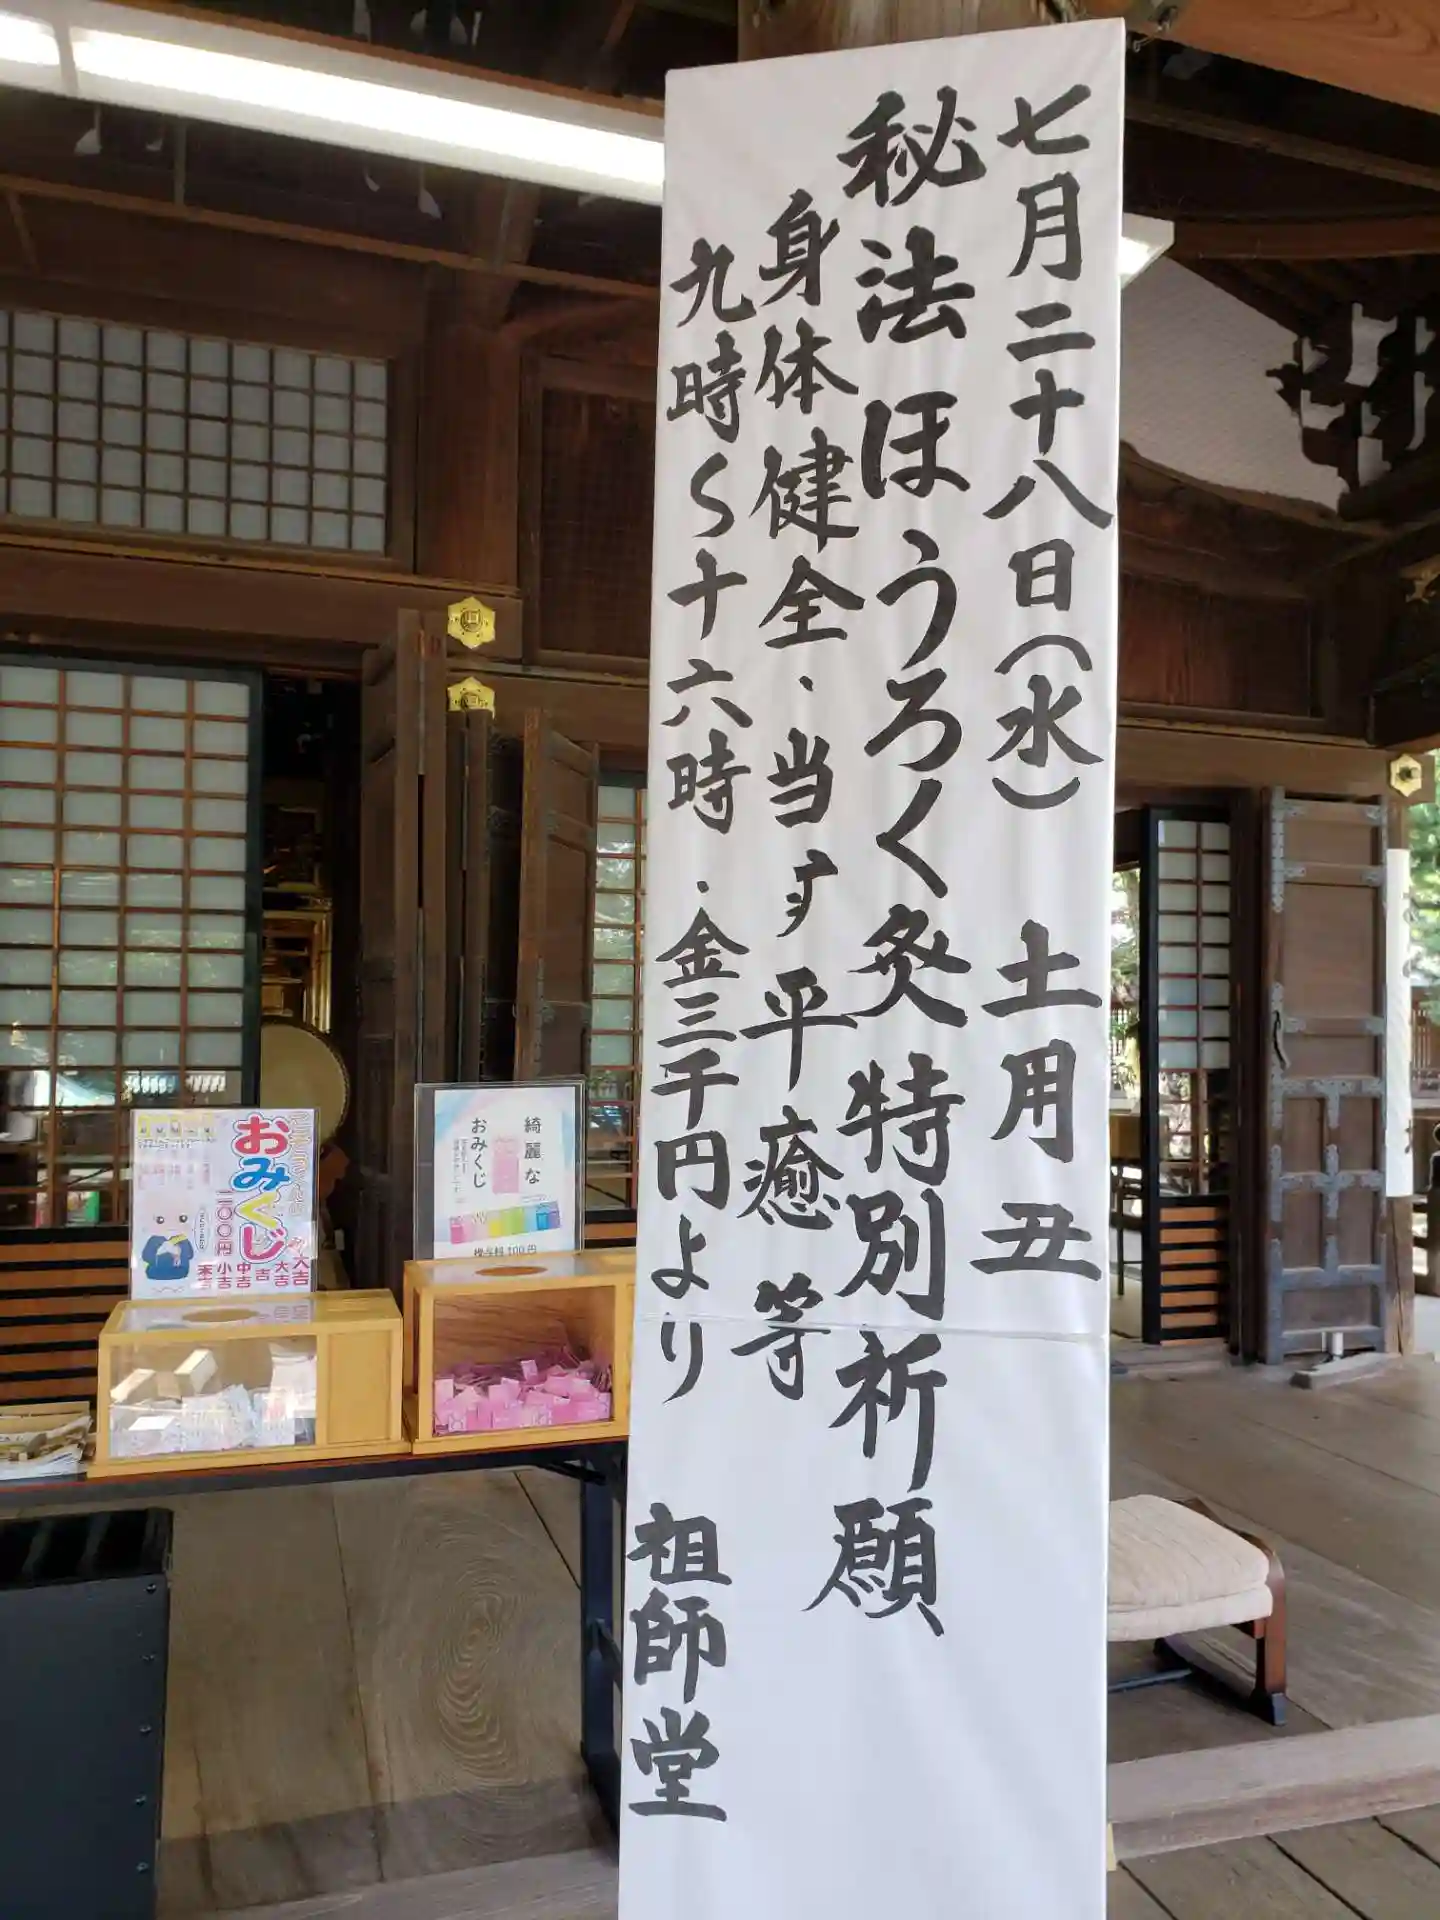 七月二十八日（水）　土用丑
秘法ほうろく灸特別祈願
身体健全・当す平癒等
九時〜十六時・金三千円より　祖師堂
おみくじ
二〇〇円
大大吉
大吉
吉
中吉
小吉
末吉
綺麗な
おみくじ
授与料100円